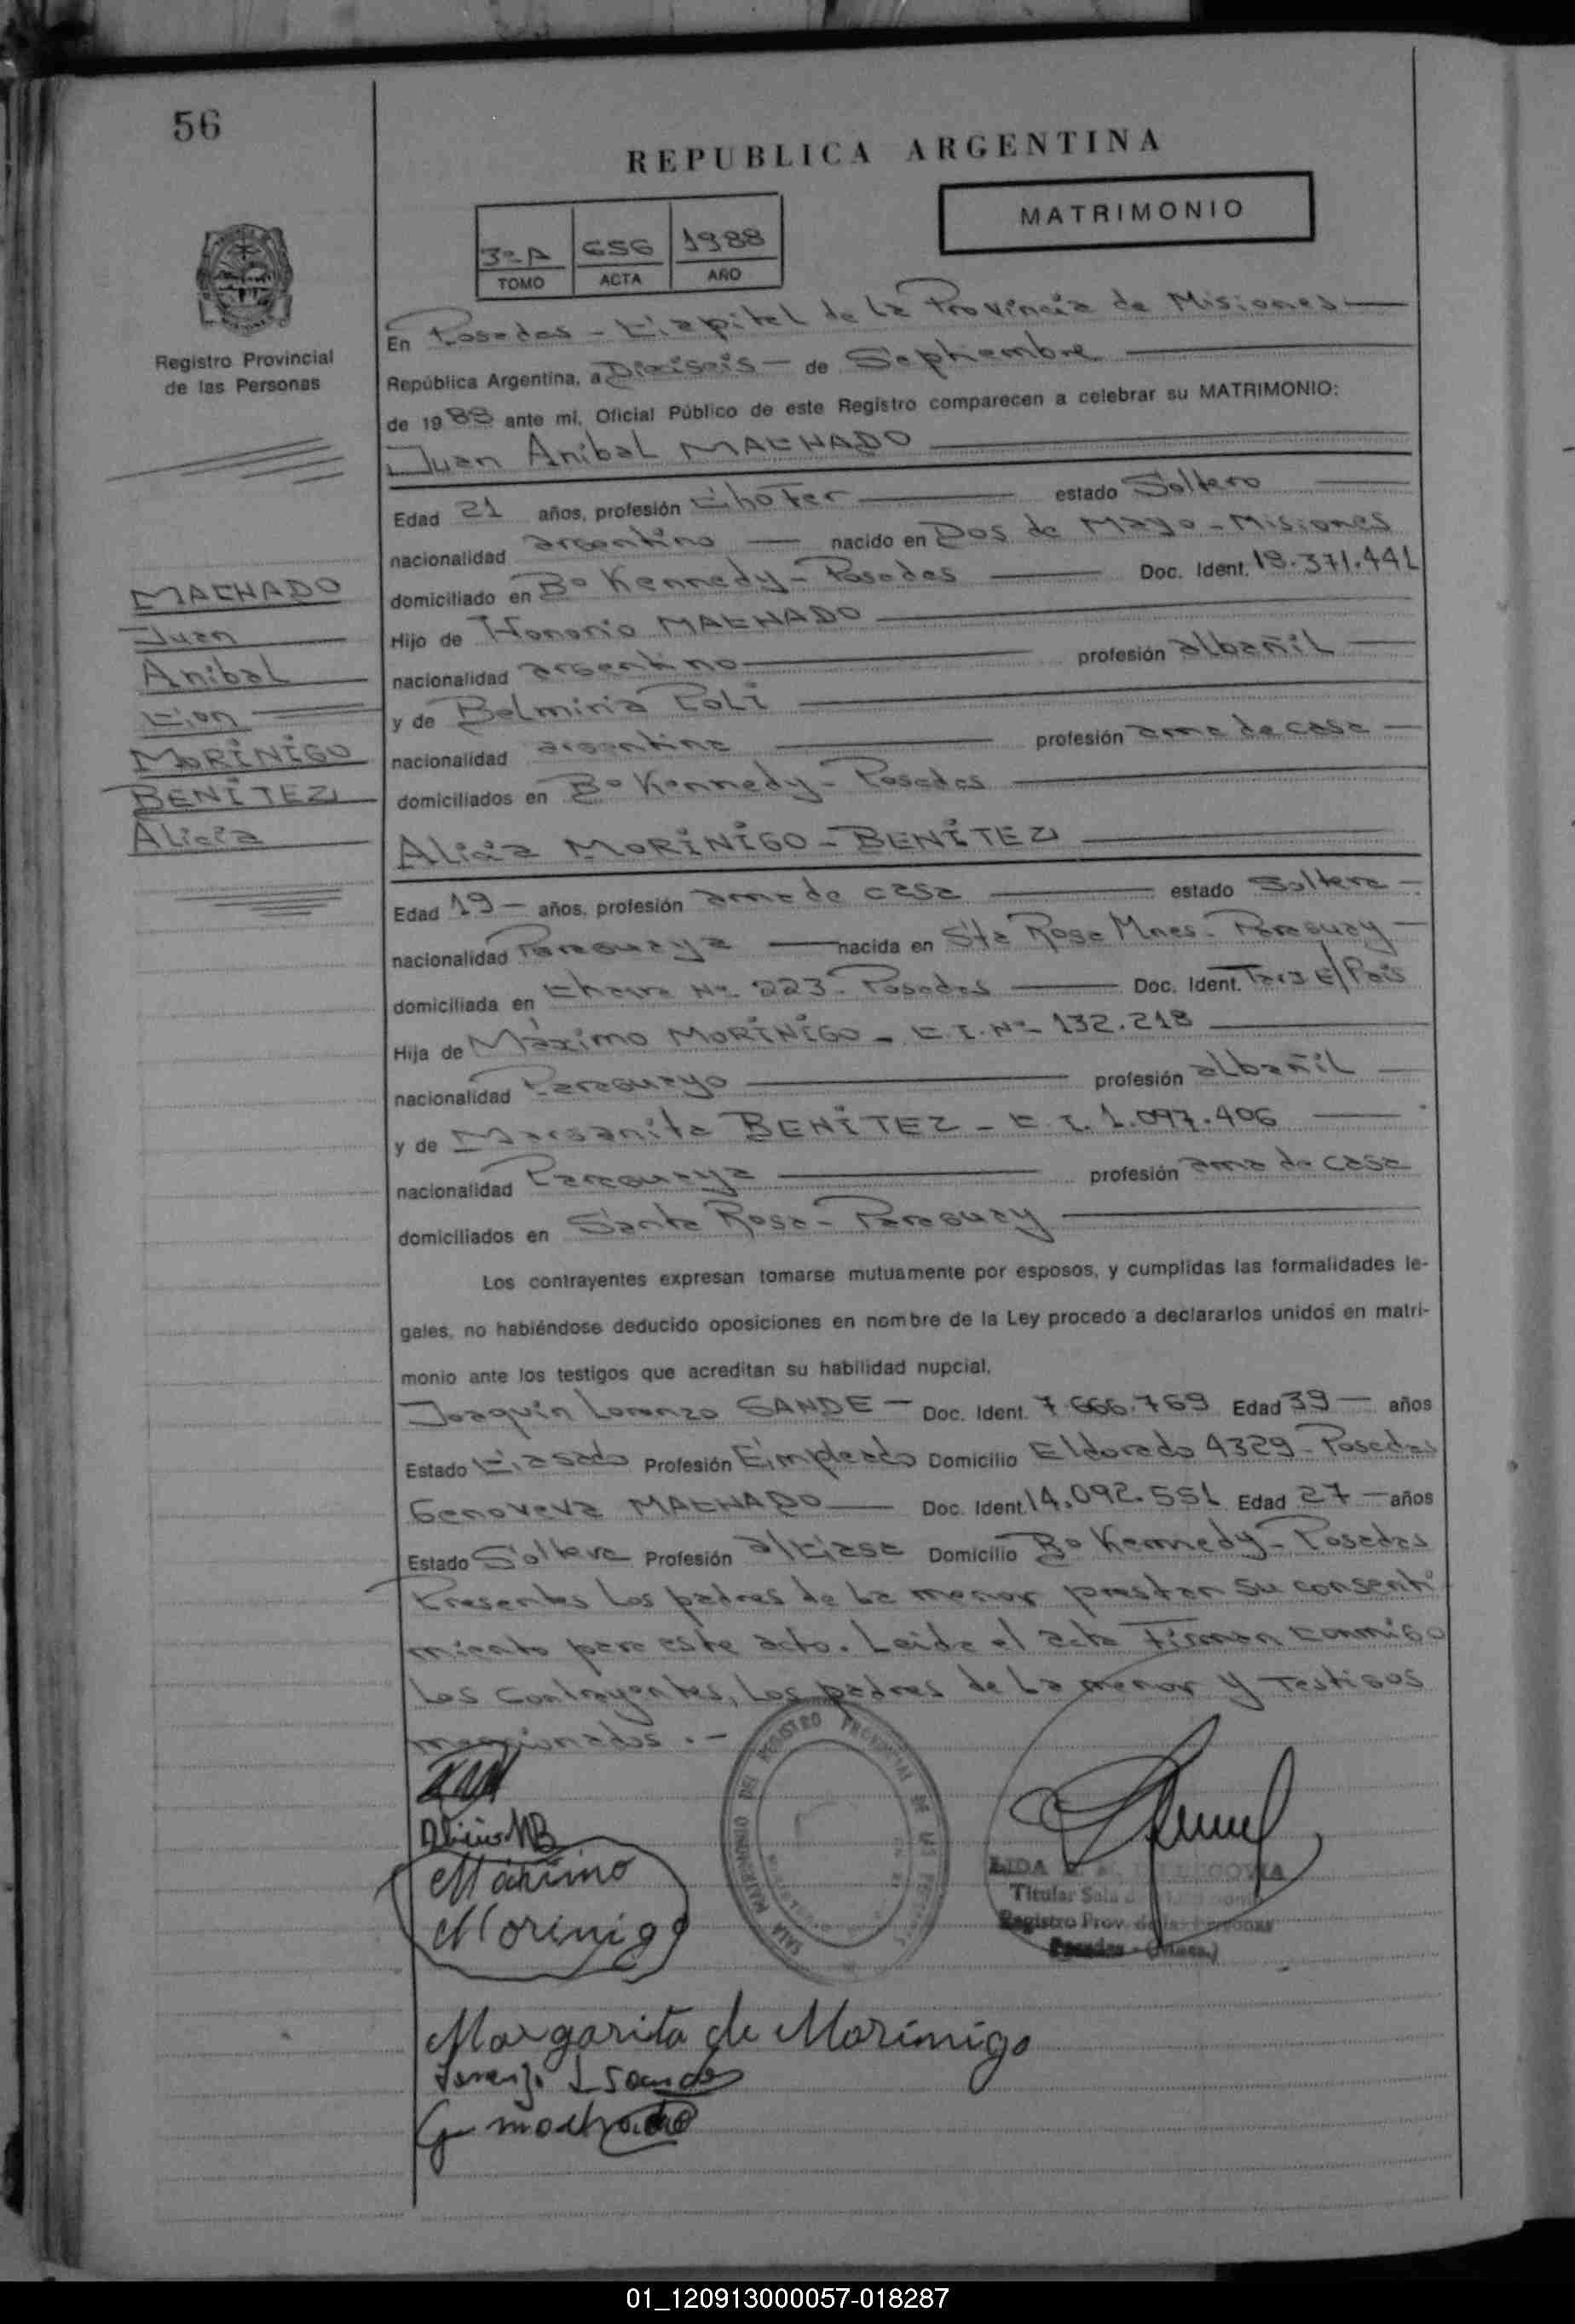 56
REPUBLICA ARGENTINA
MATRIMONIO
3º A 656 1988
TOMO ACTA AÑO
Registro Provincial
de las Personas
En Posadas - Capital de la Provincia de Misiones
República Argentina, a Dieciseis de Septiembre
de 1988 ante mi, Oficial Público de este Registro comparecen a celebrar su MATRIMONIO:
Juan Anibal MACHADO
Edad 21 años, profesión Chofer estado Soltero
nacionalidad argentino nacido en Dos de Mayo - Misiones
domiciliado en Bº Kennedy - Posadas Doc. Ident. 18.371.441
Hijo de Honorio MACHADO
nacionalidad argentino profesión albañil
y de Belmiria Poli
nacionalidad argentina profesión ama de casa
domiciliados en Bº Kennedy - Posadas
MACHADO
Juan
Anibal
Con
MORINIGO
BENITEZ
Alicia
Alicia MORINIGO - BENITEZ
Edad 19 - años, profesión ama de casa estado Soltera -
nacionalidad Paraguaya nacida en Sta Rosa Mnes - Paraguay
domiciliada en Nº 223 - Posadas Doc. Ident. Tarj E/País
Hija de Máximo MORINIGO - C.I. Nº 132.218
nacionalidad Paraguayo profesión albañil
y de Margarita BENITEZ - C.I. 1.097.406
nacionalidad Paraguaya profesión ama de casa
domiciliados en Santa Rosa - Paraguay
Los contrayentes expresan tomarse mutuamente por esposos, y cumplidas las formalidades le-
gales, no habiéndose deducido oposiciones en nombre de la Ley procedo a declararlos unidos en matri-
monio ante los testigos que acreditan su habilidad nupcial.
Joaquin Lorenzo SANDE - Doc. Ident. 7.666.769 Edad 39 - años
Estado Casado Profesión Empleado Domicilio Eldorado 4329 - Posadas
Genoveva MACHADO Doc. Ident. 14.092.551 Edad 27 - años
Estado Soltera Profesión Domicilio Bº Kennedy - Posadas
Presentes los padres de la menor prestan su consenti
miento para este acto. Leida el acta Firman conmigo
los contrayentes, los padres de la menor y testigos
mencionados . -
Alicia MB
Máximo
Morinigo
SALA MATRIMONIO DEL REGISTRO PROVINCIAL DE LAS PERSONAS
LIDA SEGOVIA
Titular Sala
Registro Prov. de las Personas
Posadas - (Mnes.)
Margarita de Morinigo
G machado
01_120913000057-018287